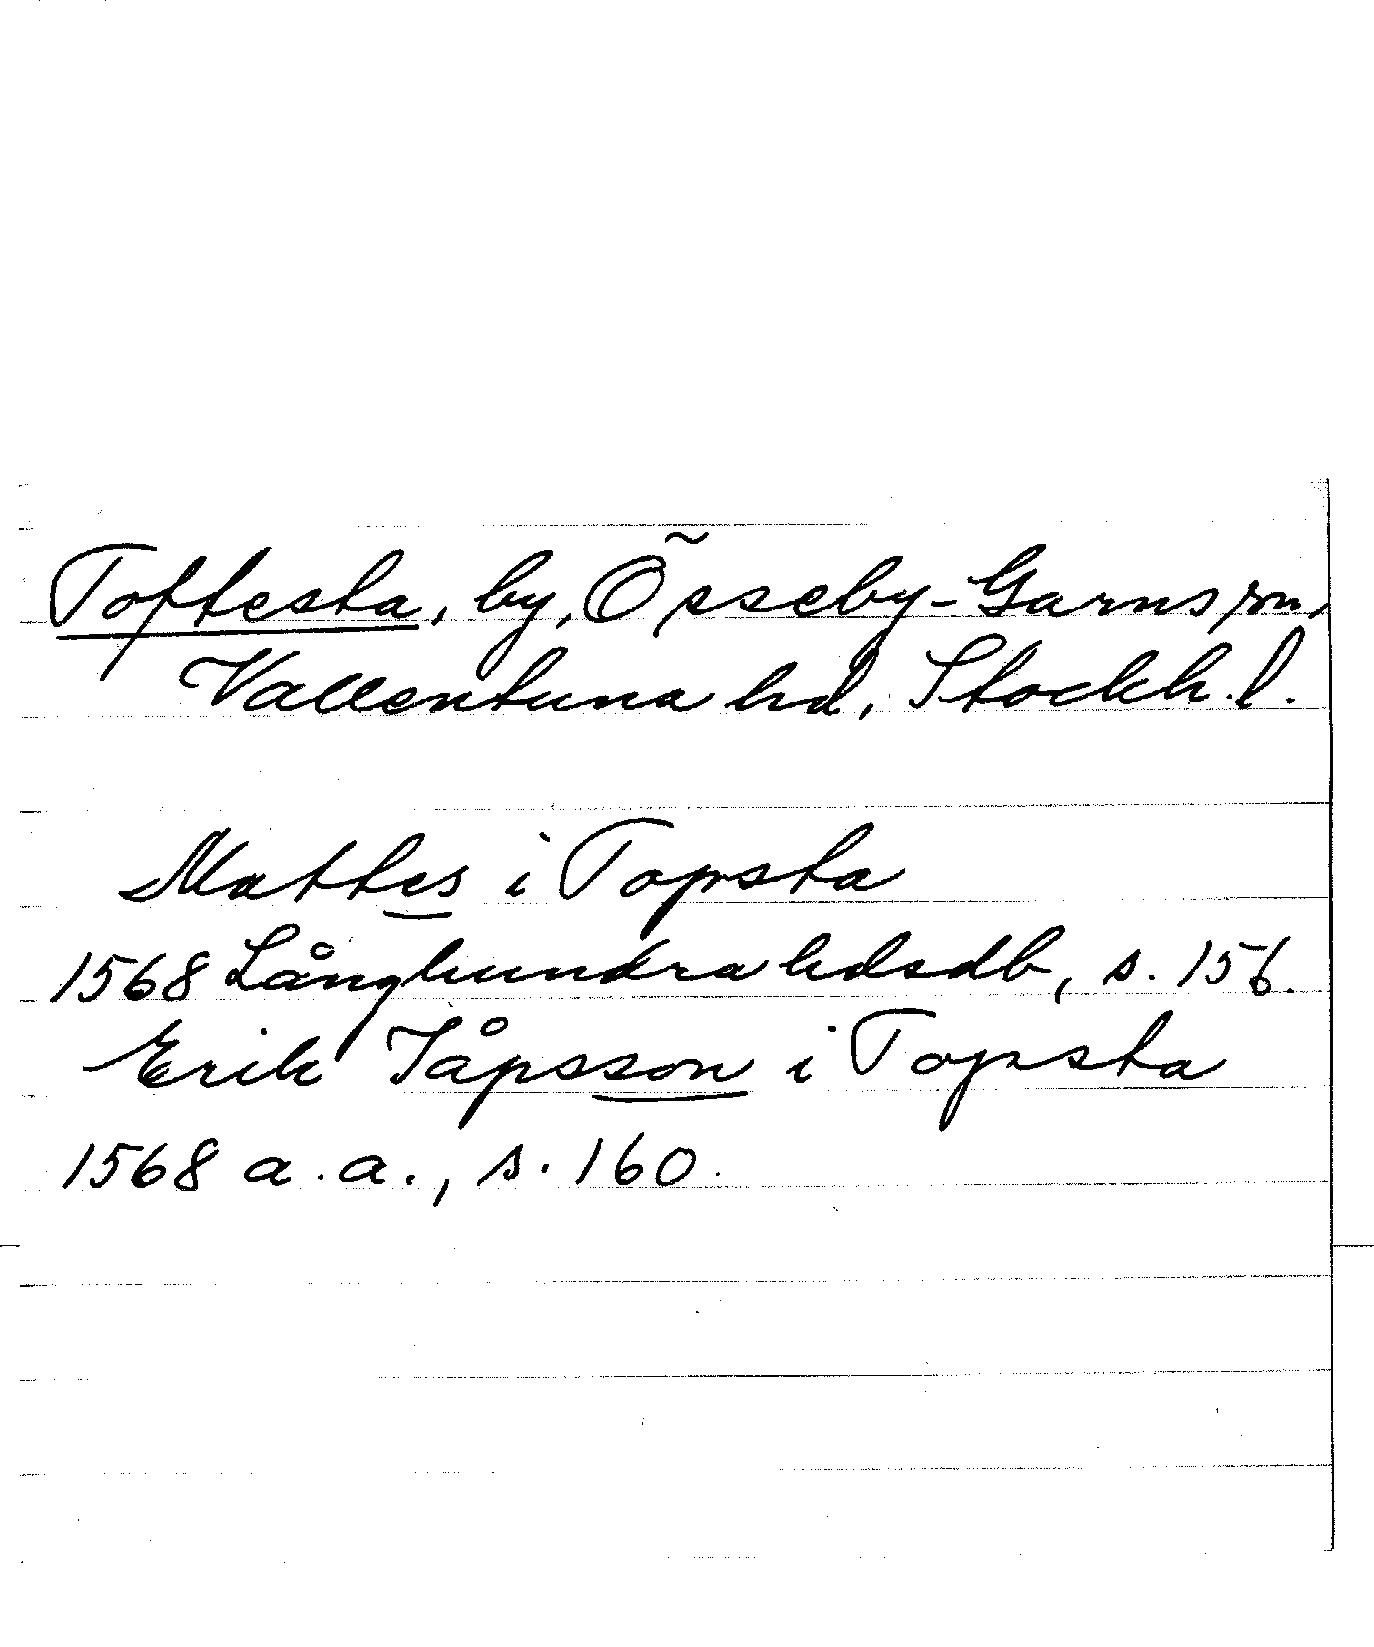 Toftesta, by, Össeby-Garns sn,
Vallentuna hd, Stockh. l.
Mattes i Topsta
1568 Långhundra hdsdb, s. 156.
Erik Jåpsson i Topsta
1568 a. a., s. 160.